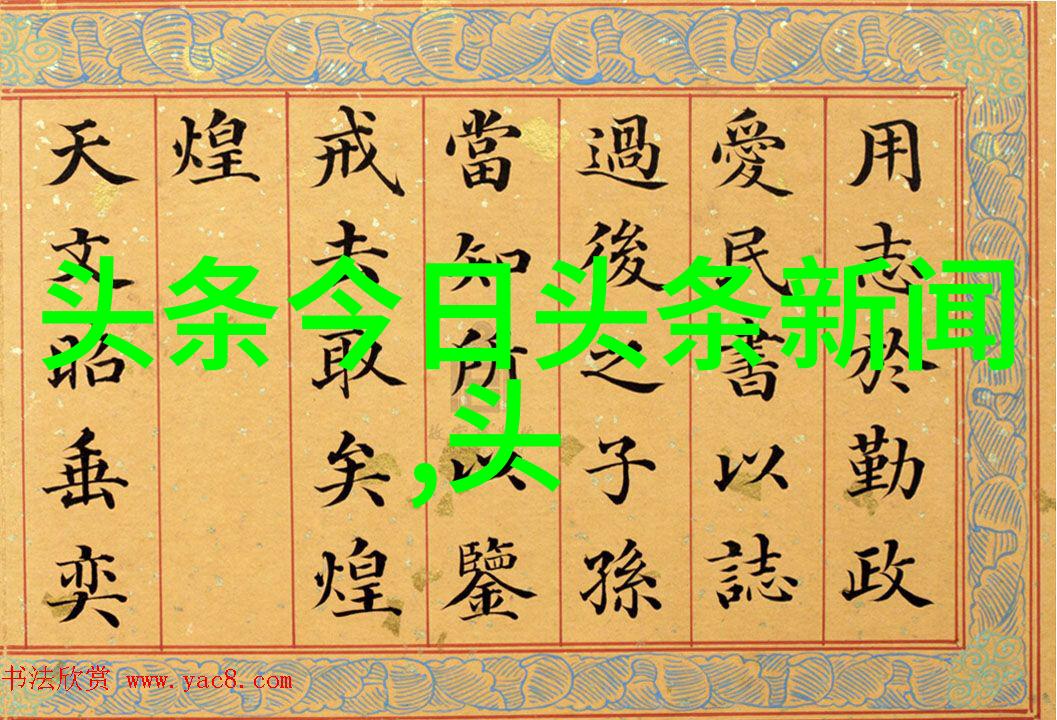 用志於勤政
愛民書以誌
過後之子孫
當知所以鑒
戒去取矣煌
煌
天文昭垂奕
头条今日头条新闻
,头
书法欣赏 www.yac8.com